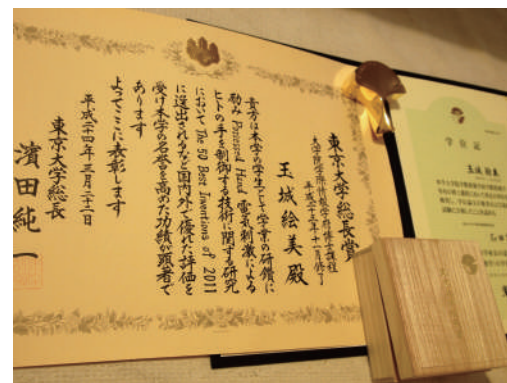 東京大学総長賞
大学院学際情報学府博士課程
平成二十三年十一月修了
玉城絵美殿
貴方は本学の学生として学業の研鑽に
励み Possessed Hand 電気刺激による
ヒトの手を制御する技術に関する研究
において The 50 Best Inventions of 2011
に選出されるなど国内外で優れた評価を
受け本学の名誉を高めた功績が顕著で
あります
よってここに表彰します
平成二十四年三月二十二日
東京大学総長
濱田純一
学位記
玉城絵美